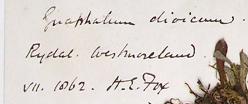 Gnaphalium dioicum.
Rydal. Westmoreland
VII. 1862. H.E. Fox